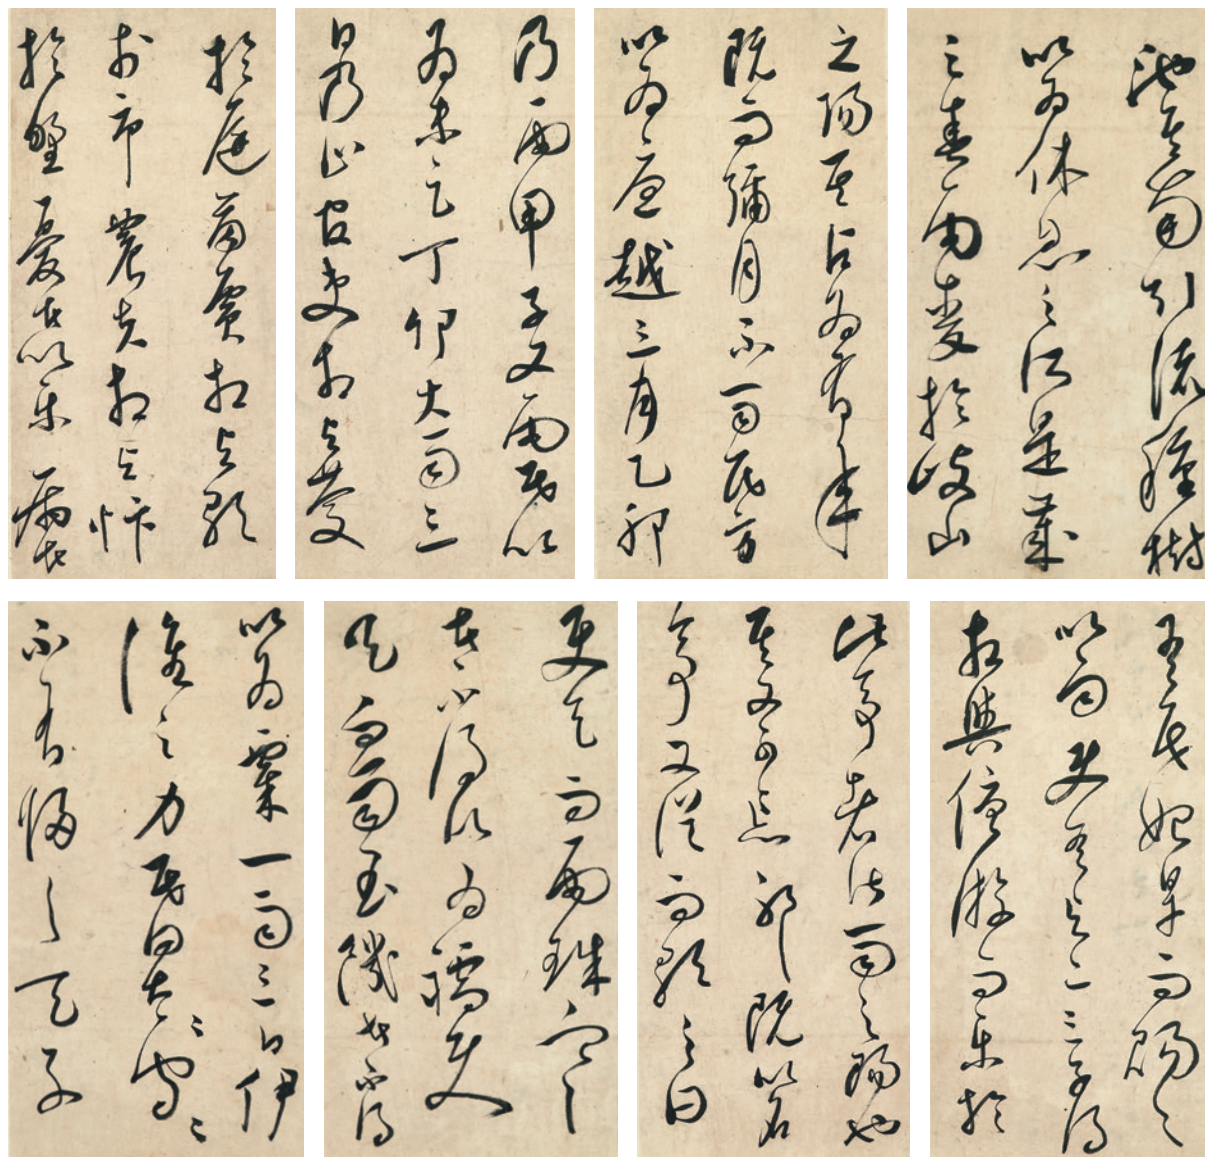 池其南引流種樹
以為休息之所是歲
之春雨麥於岐山
之陽其占為有年
既而彌月不雨民方
以為憂越三月乙卯
乃雨甲子又雨民以
為未足丁卯大雨三
日乃止官吏相與慶
於庭商賈相與歌
於市農夫相與忭
於野憂者以樂病者
吾民始旱而賜之
以雨使吾與二三子得
相與優游而樂於
此亭者皆雨之賜也
其又可忘耶既以名
亭又從而歌之曰
使天而雨珠寒
者不得以為襦使
天而雨玉飢者不得
以為粟一雨三日伊
誰之力民曰太〻守〻
不有歸之天子